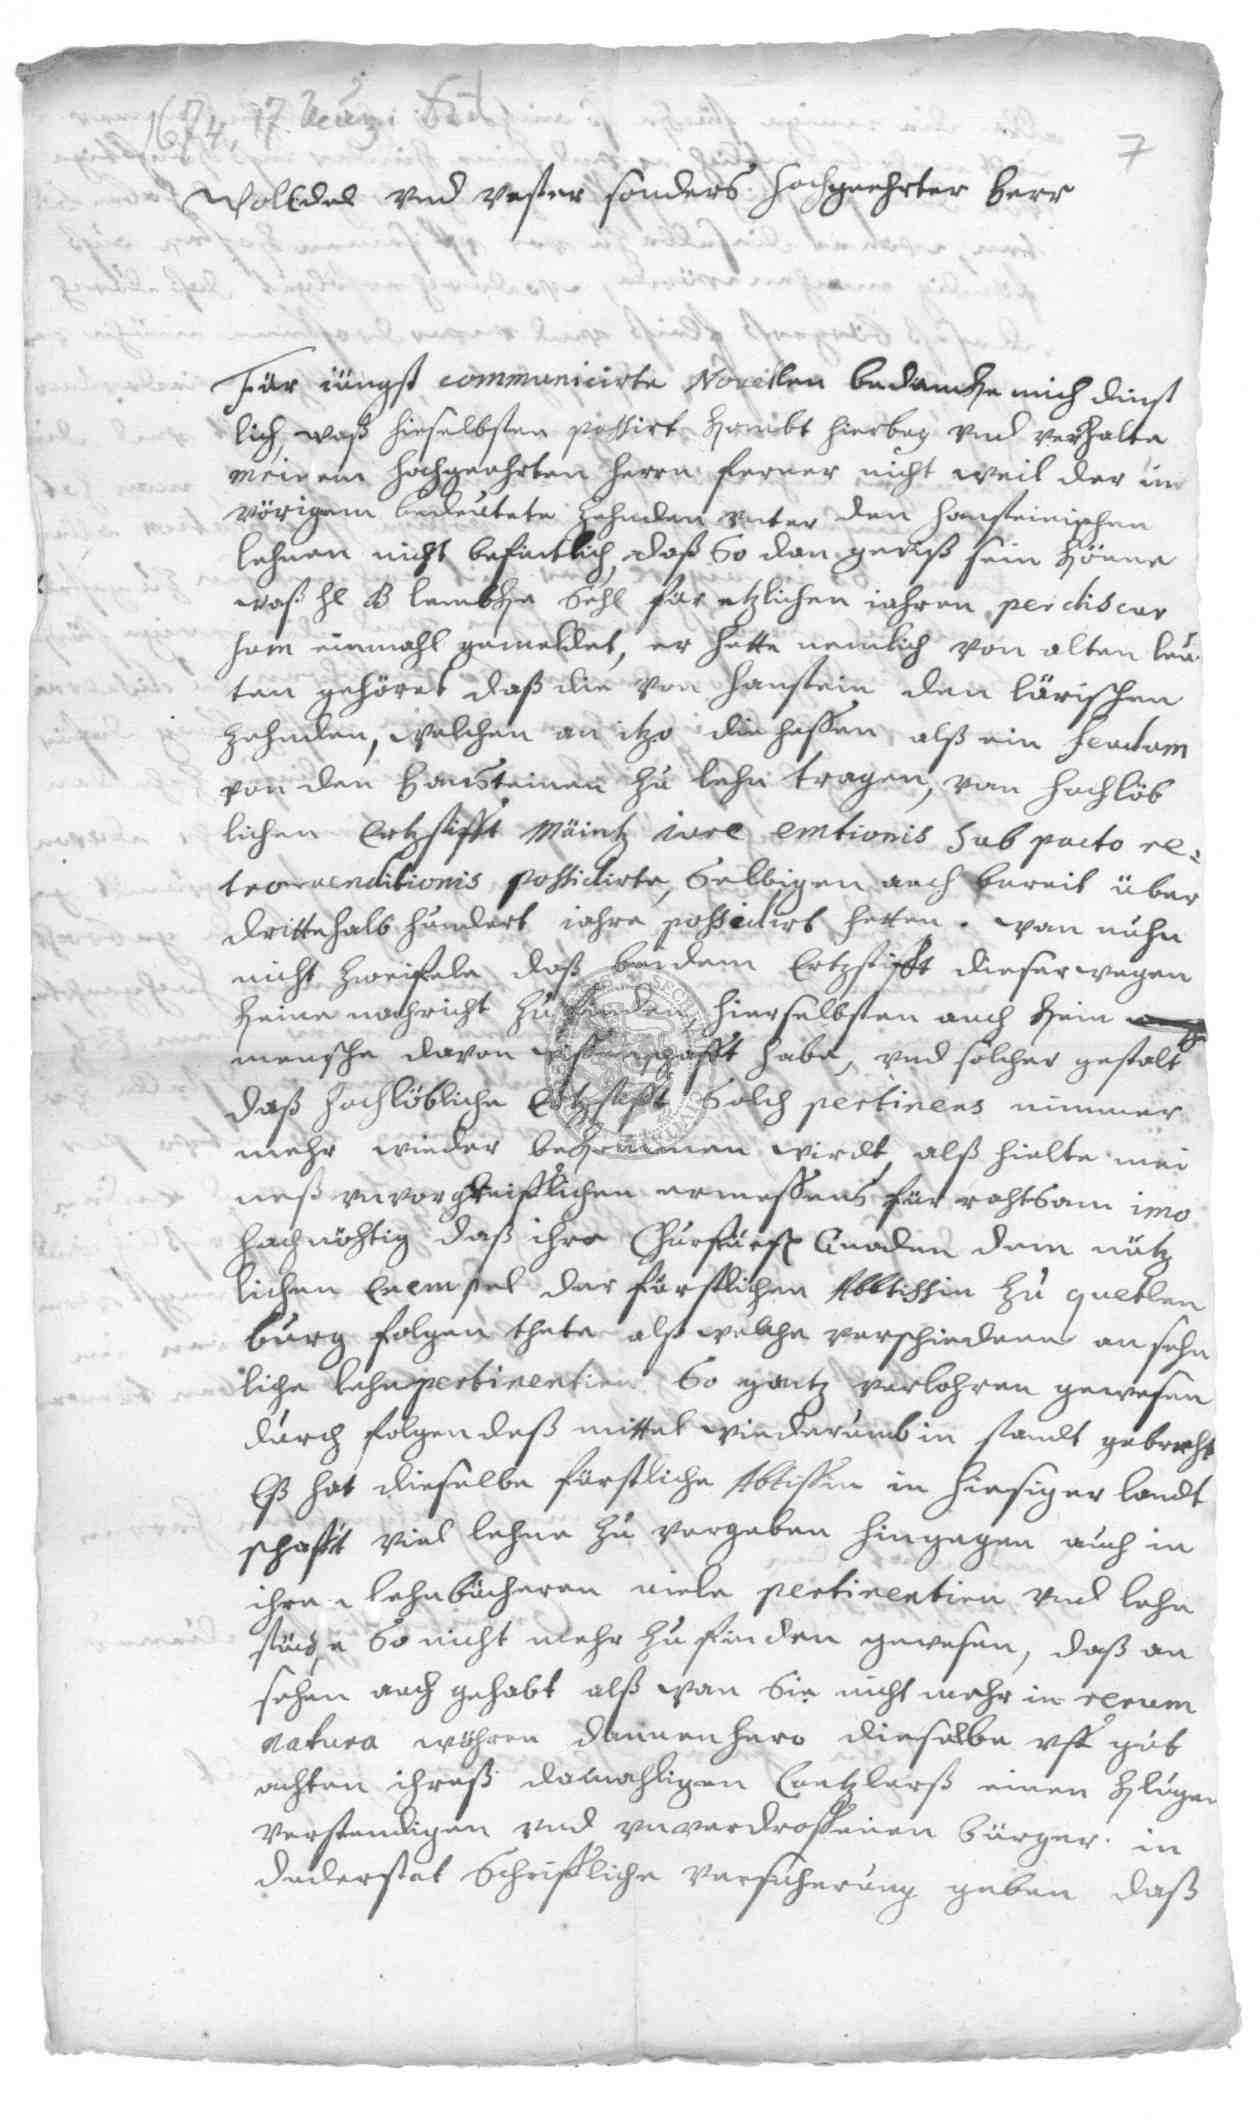 1674, 17. Martz.
7
WolEdel vnd vester sonders hochgeehrter Herr
Für jüngst communicirte Novellen bedancke mich dinst
lich, waß hieselbsten passirt kombt hierbey vnd verhalte
meinem hochgeehrten Herrn ferner nicht weil der im
vörigem bedeutete Zehnden vnter den Hansteinischen
lehnen nicht befintlich, daß So dan gewiß sein könne
waß H. B lembke Sehl für etzlichen iahren per discur
sum einmahl gemeldet, er hette nemlich von alten leu
ten gehöret daß die von Hanstein den lärischen
Zehnden, welchen an itzo die Hessen alß ein feudum
von den Hansteinen zu lehn tragen, vom hochlöb
lichen Ertzstifft Mäintz iure emtionis sub pacto re:
trovenditionis possidirte, Selbigen auch bereit über
drittehalb hundert iahre possidirt hetten. wan nuhn
nicht zweifele daß bei dem Ertzstifft dieserwegen
keine nachricht zu finden, hierselbsten auch kein
mensche davon wissenschafft habe, vnd solcher gestalt
daß hochlöbliche Ertzstifft Solch pertinens nimmer
mehr wieder bekommen wirdt, alß hielte mei
neß vnvorgreifflichen ermessens für rahtsam imo
hochnöhtig daß ihre Churfürstl Gnaden dem nütz
lichen Exempel der fürstlichen Abbtissin zu quetlen
burg folgen thete alß welche verschiedene ansehn
liche lehnpertinentien So gantz verlohren gewesen
durch folgendeß mittel wiederumb in standt gebracht
Eß hat dieselbe fürstliche Abtissin in hiesiger landt
schafft viel lehne zu vergeben hingegen auch in
ihren lehnbücheren viele pertinentien vnd lehn
stücke So nicht mehr zu finden gewesen, daß an
sehen auch gehabt alß wan Sie nicht mehr in rerum
natura wöhren dannenhero dieselbe vff gut
achten ihreß damahligen Cantzlerß einen klugen
verstendigen vnd vnverdrossenen bürger in
duderstat Schrifftliche versicherung geben daß